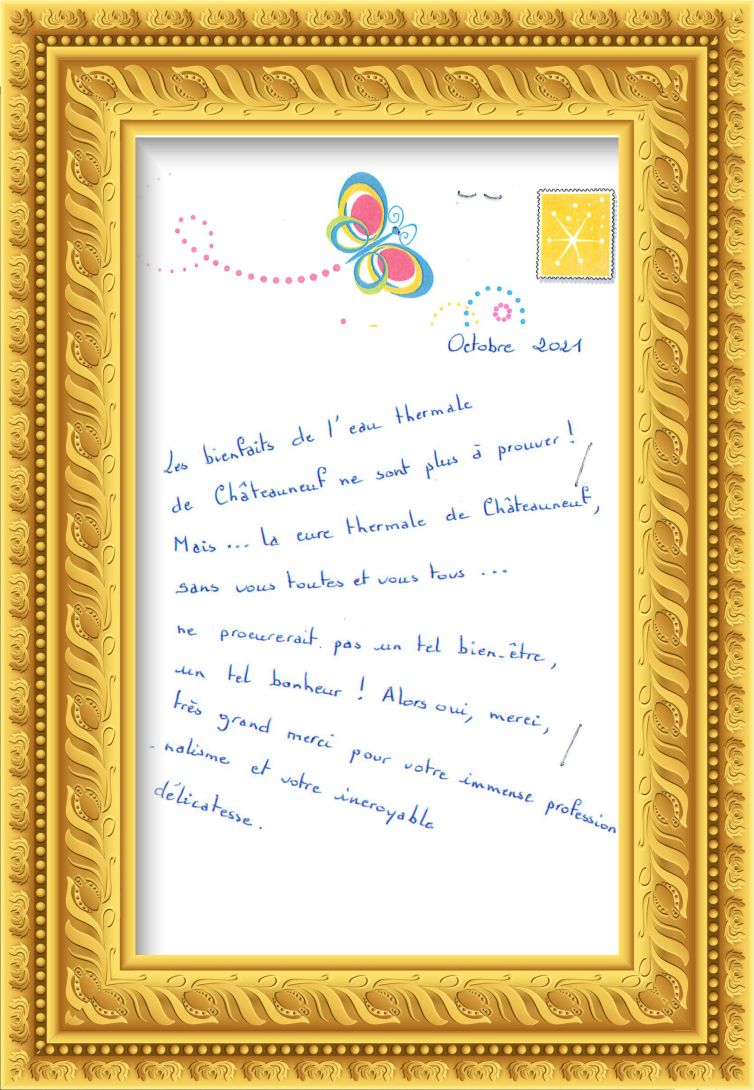 Octobre 2021
Les bienfaits de l'eau thermale
de Châteauneuf ne sont plus à prouver !
Mais ... la cure thermale de Châteauneuf,
sans vous toutes et vous tous ...
ne procurerait pas un tel bien-être,
un tel bonheur ! Alors oui, merci,
très grand merci pour votre immense profession
-nalisme et votre incroyable
délicatesse.